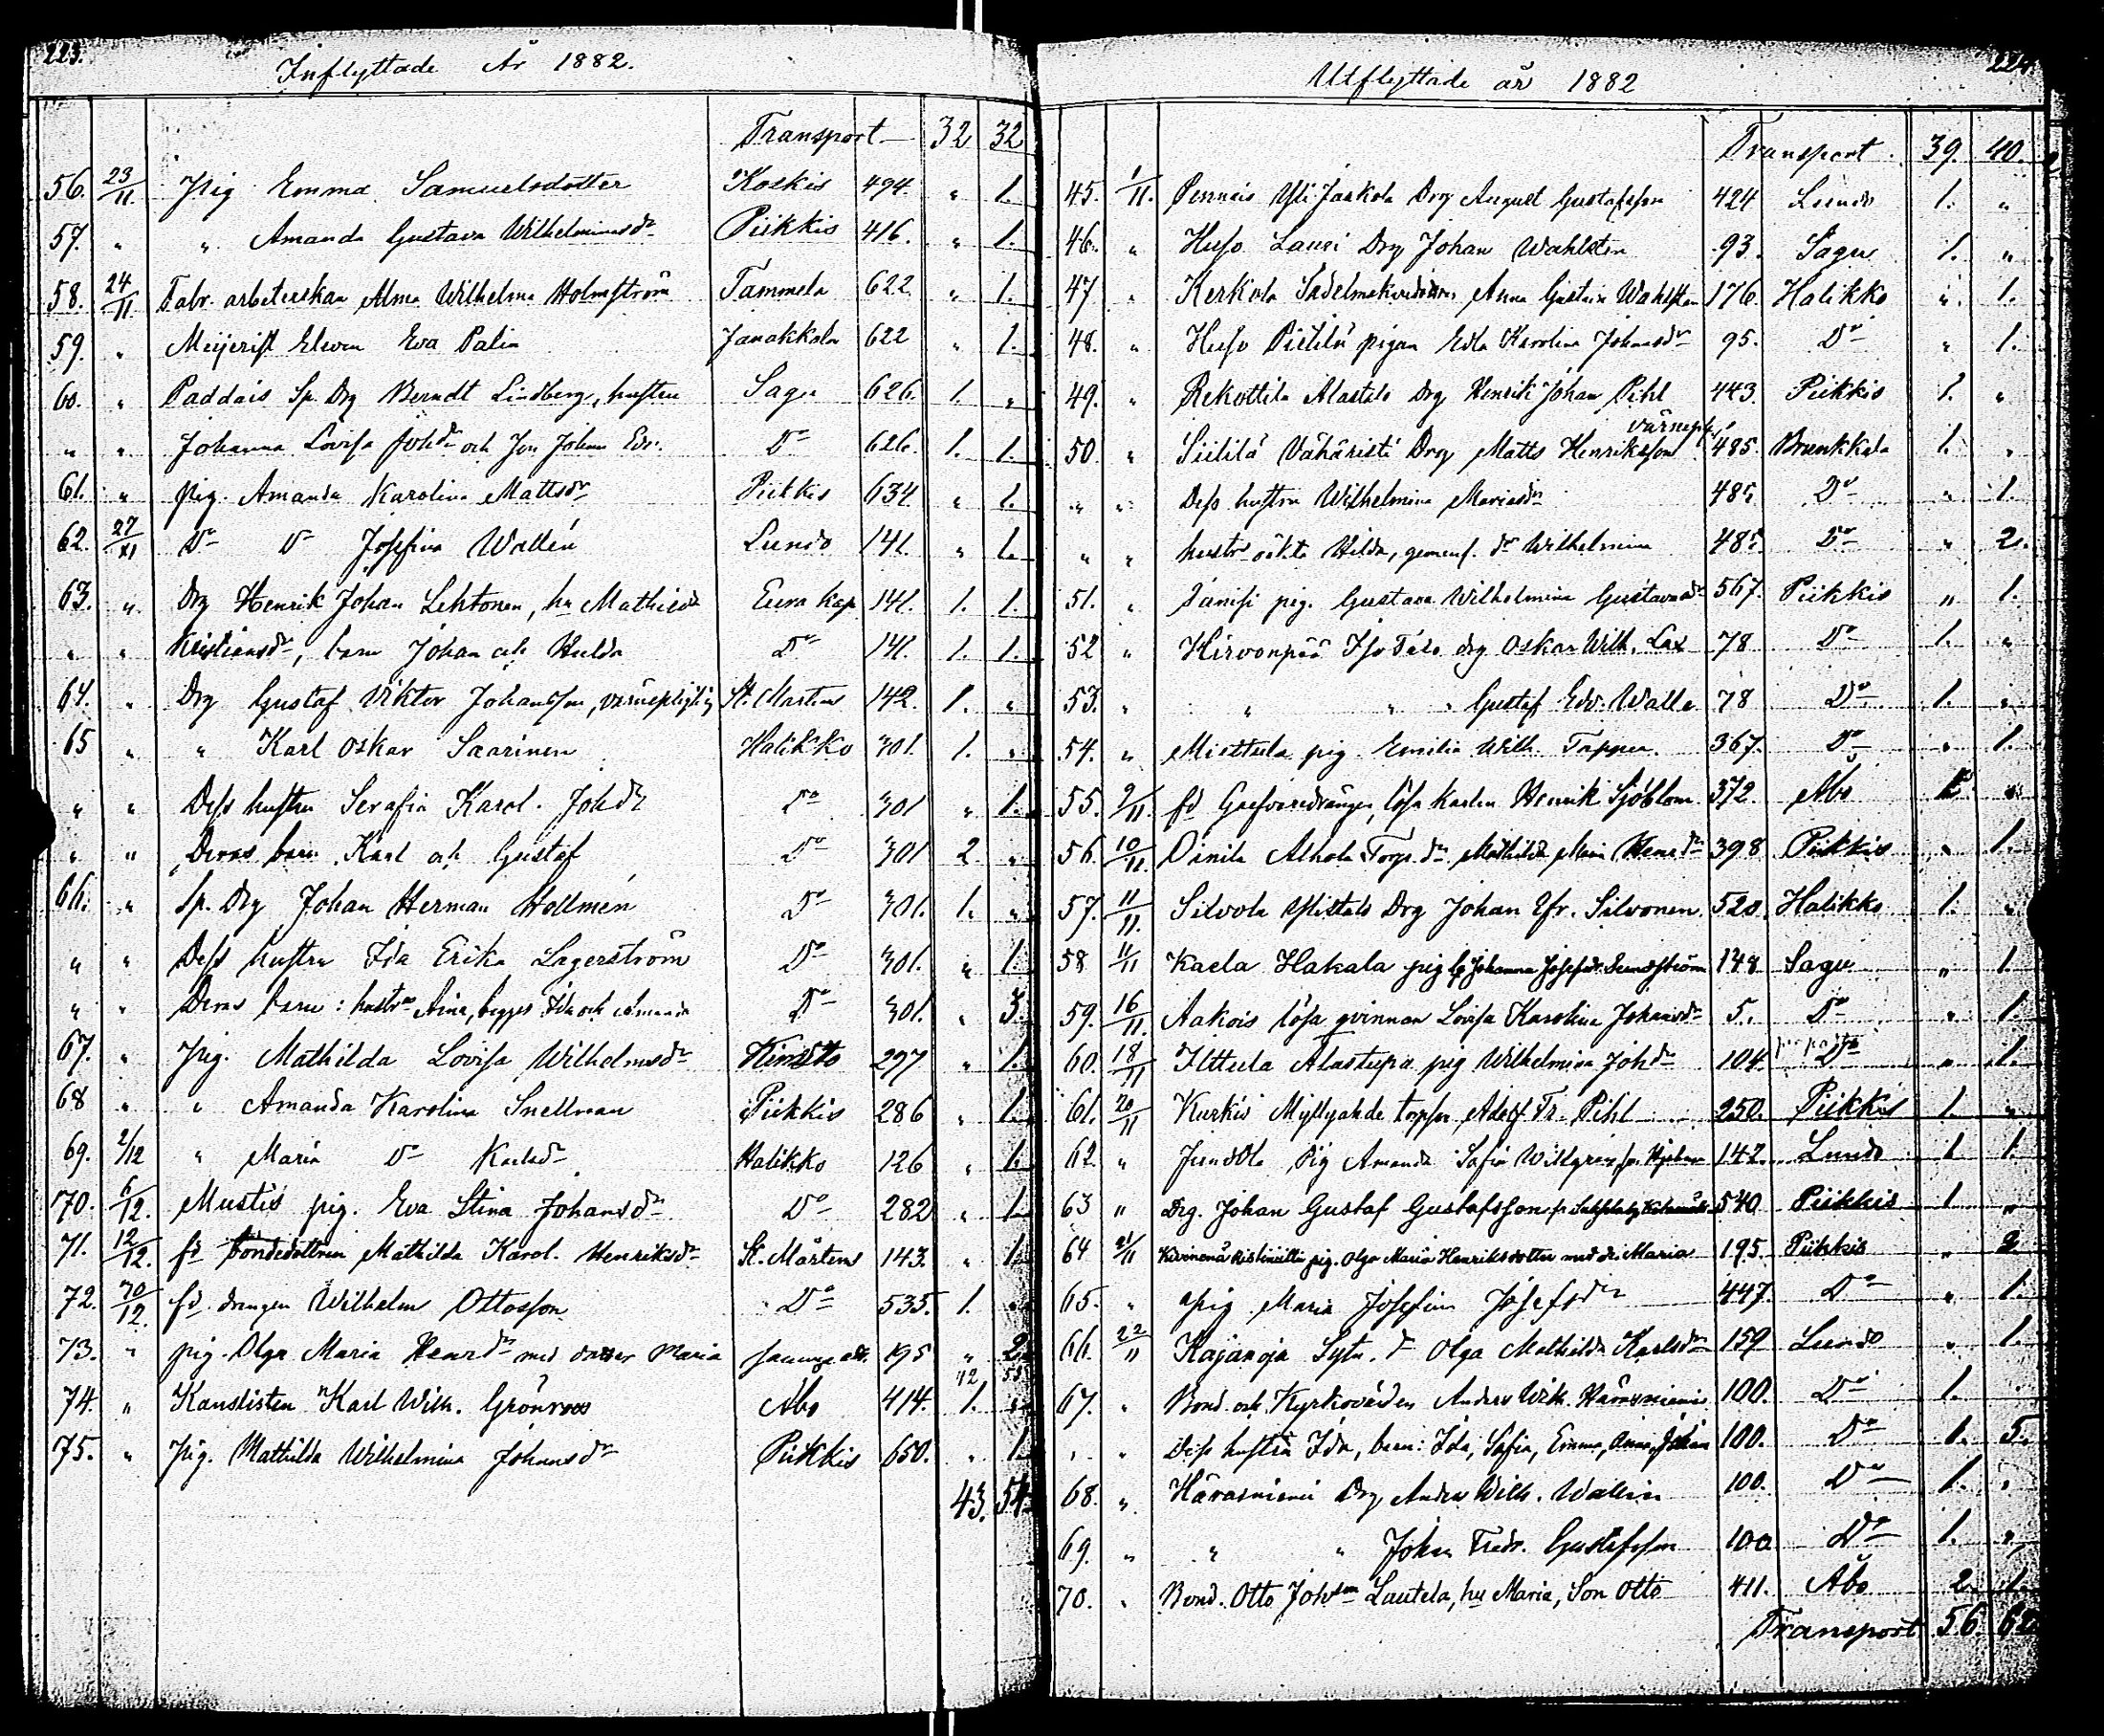 223.
Inflyttade År 1882.
Transport 32 32
56. 23/11 Pig Emma Samuelsdotter Koskis 494. " 1.
57. " " Amanda Gustava Wilhelminasdr Piikkis 416. " 1.
58. 24/11 Fabr. arbeterskan Alma Wilhelma Holmström Tammela 622 " 1.
59. " Meijerist Eleven Eva Palin Janakkala 622 " 1.
60. " Paddais Sp. Drg Berndt Lindberg, hustru Sagu 626. 1. "
" " Johanna Lovisa Johdr och Son Johan Edv. Do 626. 1. 1.
61. " pig. Amanda Karolina Mattsdr Piikkis 634 " 1.
62. 27/XI Do Do Josefina Wallén Lundo 141. " 1.
63. " Drg Henrik Johan Lehtonen, hu Mathilda Eura Kap 141. 1. 1.
" " Kristiansdr, barn Johan och Hulda Do 141. 1. 1.
64. " Drg Gustaf Viktor Johansson, värnepligtig St. Martens 142. 1. "
65 " " Karl Oskar Saarinen Halikko 301. 1. "
" " Dess hustru Serafia Karol. Johdr Do 301 " 1.
" " Deras barn Karl och Gustaf Do 301 2 "
66. " Sp. Drg Johan Herman Hollmén Do 301. 1. "
" " Dess hustru Ida Erika Lagerström Do 301. " 1.
" " Deras barn: hustrs Aina, begges Ida och Amanda Do 301. " 3.
67. " Pig. Mathilda Lovisa Wilhelmsdr 297 " 1.
68 " " Amanda Karolina Snellman Piikkis 286 " 1.
69. 2/12 " Maria Do Karlsdr Halikko 126 " 1.
70. 6/12. Mustis pig. Eva Stina Johansdr Do 282 " 1
71. 12/12. fd bondedottren Mathilda Karol. Henriksdr St. Mårtens 143. " 1.
72. 30/12. fd. drengen Wilhelm Ottosson Do 535. 1. "
73. " pig. Olga Maria Henrdr med dotter Maria 195 " 2
42 53
74. " Kanslisten Karl Wilh. Grönroos Åbo 414. 1. "
75. " Pig. Mathilda Wilhelmina Johansdr Piikkis 650. " 1.
43. 54
224.
Utflyttade år 1882
Transport. 39. 40.
45. 1/11. Pennais Yli Jaakola Drg August Gustafsson 424 Lundo 1. "
46. " Huso Lauri Drg Johan Wahlsten 93. Sagu 1. "
47 " Kerkola Anna Gustava Wahlsten 176. Halikko " 1.
48. " Huso Pietilä pigan Edla Karolina Johansdr 95. Do " 1.
49. " Rekottila Alastalo Drg Henrik Johan Pihl 443. Piikkis 1. "
värnepl.
50. " Siililä Vähäristi Drg Matts Henriksson 485. Brunkkala 1. "
" " Dess hustru Wilhelmina Mariasdr 485 Do " 1.
" " hustrs oäkta Hilda, gemens. dr Wilhelmina 485. Do " 2.
51. " Pänisi pig. Gustava Wilhelmina Gustavasdr 567. Piikkis " 1.
52 " Hirvonpää Iso Talo drg Oskar Wilh. Lax 78 Do 1. "
53. " " " " Gustaf Edv. Walle 78 Do 1. "
54. " Misttula pig Emilia Wilh. Tapper. 367. Do " 1.
55. 9/11. fd Gaefvaredrängen, lösa karlen Henrik Sjöblom 372. Åbo 1. "
56. 10/11. Oinila Alhola Torp. dr Mathilda Maria Henrdr 398 Piikkis " 1.
57. 11/11. Silvola Ylistalo Drg Johan Efr. Silvonen. 520. Halikko 1. "
58 11/11 Kaela Hakala pig Johanna Josefsdr Sundström 148. Sagu " 1.
59. 16/11. Aakois lösa qvinnan Lovisa Karolina Johansdr 5. Do " 1.
60. 18/11 Ittula Alastupa pig Wilhelmina Johdr 104. Do " 1.
61. 20/11 Kurkis Myllyahde torpson Adolf Fr. Pihl 250. Piikkis 1. "
62. " Pig Amanda Sofia Willgren 142. Lundo 1 1.
63 " Drg. Johan Gustaf Gustafsson 540 Piikkis 1 "
64 21/11 pig. Olga Maria Henriksdotter med dr Maria 195. Piikkis " 2
65. " Pig Maria Josefina Josefsdr 447. Do " 1.
66. 22/11 Kajanoja Sytn. dr Olga Mathilda Karlsdr 159 Lundo " 1.
67. " Bond. och Kyrkovärden Anders Wilh. Häräsniemi 100. Do 1. "
" " Dess hustru Ida, barn: Ida, Sofia, Emma, Anna, Johan 100. Do 1. 5.
68. " Häräsniemi Drg Anders Wilh. Wallin 100. Do 1. "
69. " " " Johan Fredr. Gustafsson 100 Do 1. "
70. " Bond. Otto Johsson Lautela, hu Maria, Son Otto 411. Åbo 2. 1.
Transport 56.